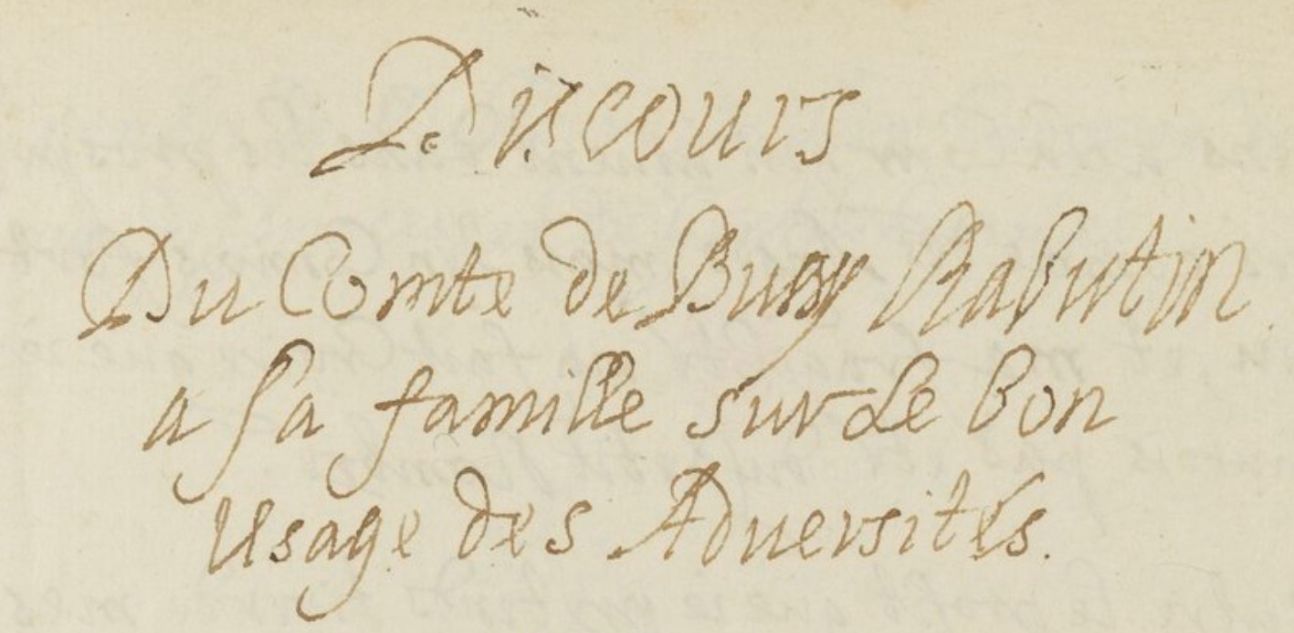 Discours
Du Comte de Bussy Rabutin
a sa famille sur Le bon
Usage des Adversités.